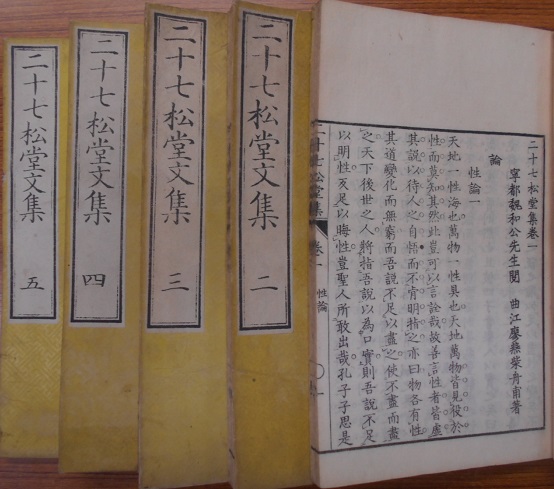 二十七松堂集卷一
寧都魏和公先生閱 曲江廖燕柴舟甫著
論
性論一
天地一性海也萬物一性具也天地萬物皆見役於
性而莫知其然此豈可以言詮哉故善言性者皆虛
其說以待人之自悟而不肯明指之亦曰物各有性
其道變化而無窮而吾說不足以盡之使不盡而盡
之天下後世之人將指吾說以為口實則吾說不足
以明性反足以晦性豈聖人所敢出哉孔子子思是
二十七松堂集 卷一 性論
二十七松堂文集 二
二十七松堂文集 三
二十七松堂文集 四
二十七松堂文集 五